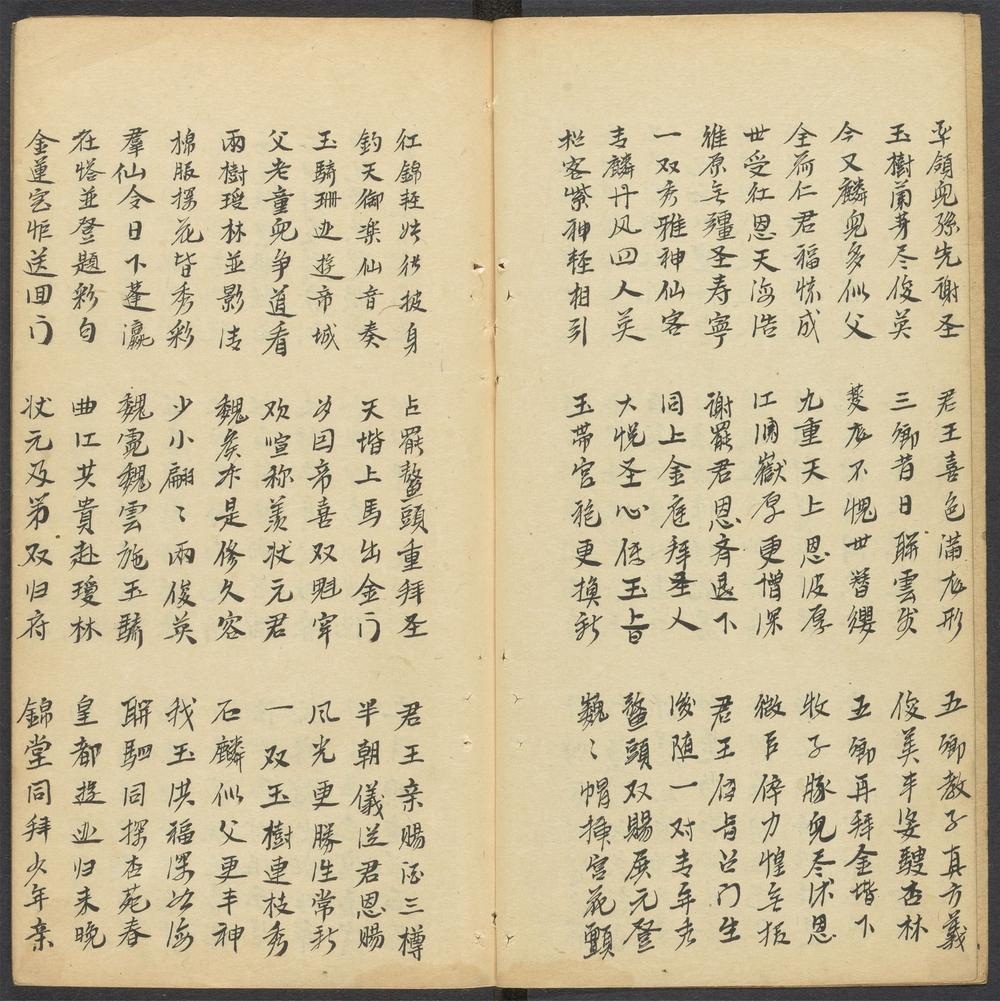 率領兒孫先謝圣 君王喜色滿龙形 五卿教子真方義
玉樹蘭芽尽俊英 三卿昔日聨雲发 俊美丰姿杏林
今又麟兒多似父 夔龙不愧世簪纓 五卿再拜金堦下
全荷仁君福成 九重天上恩波厚 牧子豚兒尽沐恩
世受红恩天海浩 江涸嶽厚更憎深 微臣碎力惶无报
难原无疆圣寿寧 谢罷君恩斉退下 君王傳旨召门生
一双秀雅神仙客 同上金庭拜圣人 後随一对青年秀
青麟丹凤四人英 大悦圣心传玉旨 鳌頭双賜展元登
松客紫神軽相引 玉带宫袍更换新 巍〻帽插宫花顫
红錦軽披身 占罷鳌頭重拜圣 君王亲赐酒三樽
鈞天御楽仙音奏 天堦上馬出金门 半朝儀送君恩賜
玉骑珊逊遊帝城 为因帝喜双魁宰 风光更勝往常新
父老童兒争道看 欢喧称羨状元君 一双玉樹連枝秀
兩樹瓊林並影清 魏矦本是修久容 石麟似父更丰神
棉服探花皆秀彩 少小翩〻兩俊英 我玉洪福深如海
羣仙今日下蓬瀛 魏霞魏雲施玉驕 聨駟同探杏苑春
在塔並登題彩句 曲江共貴赴瓊林 皇都遊逊归来晚
金蓮宝炬送回门 状元及第双归府 錦堂同拜少年亲